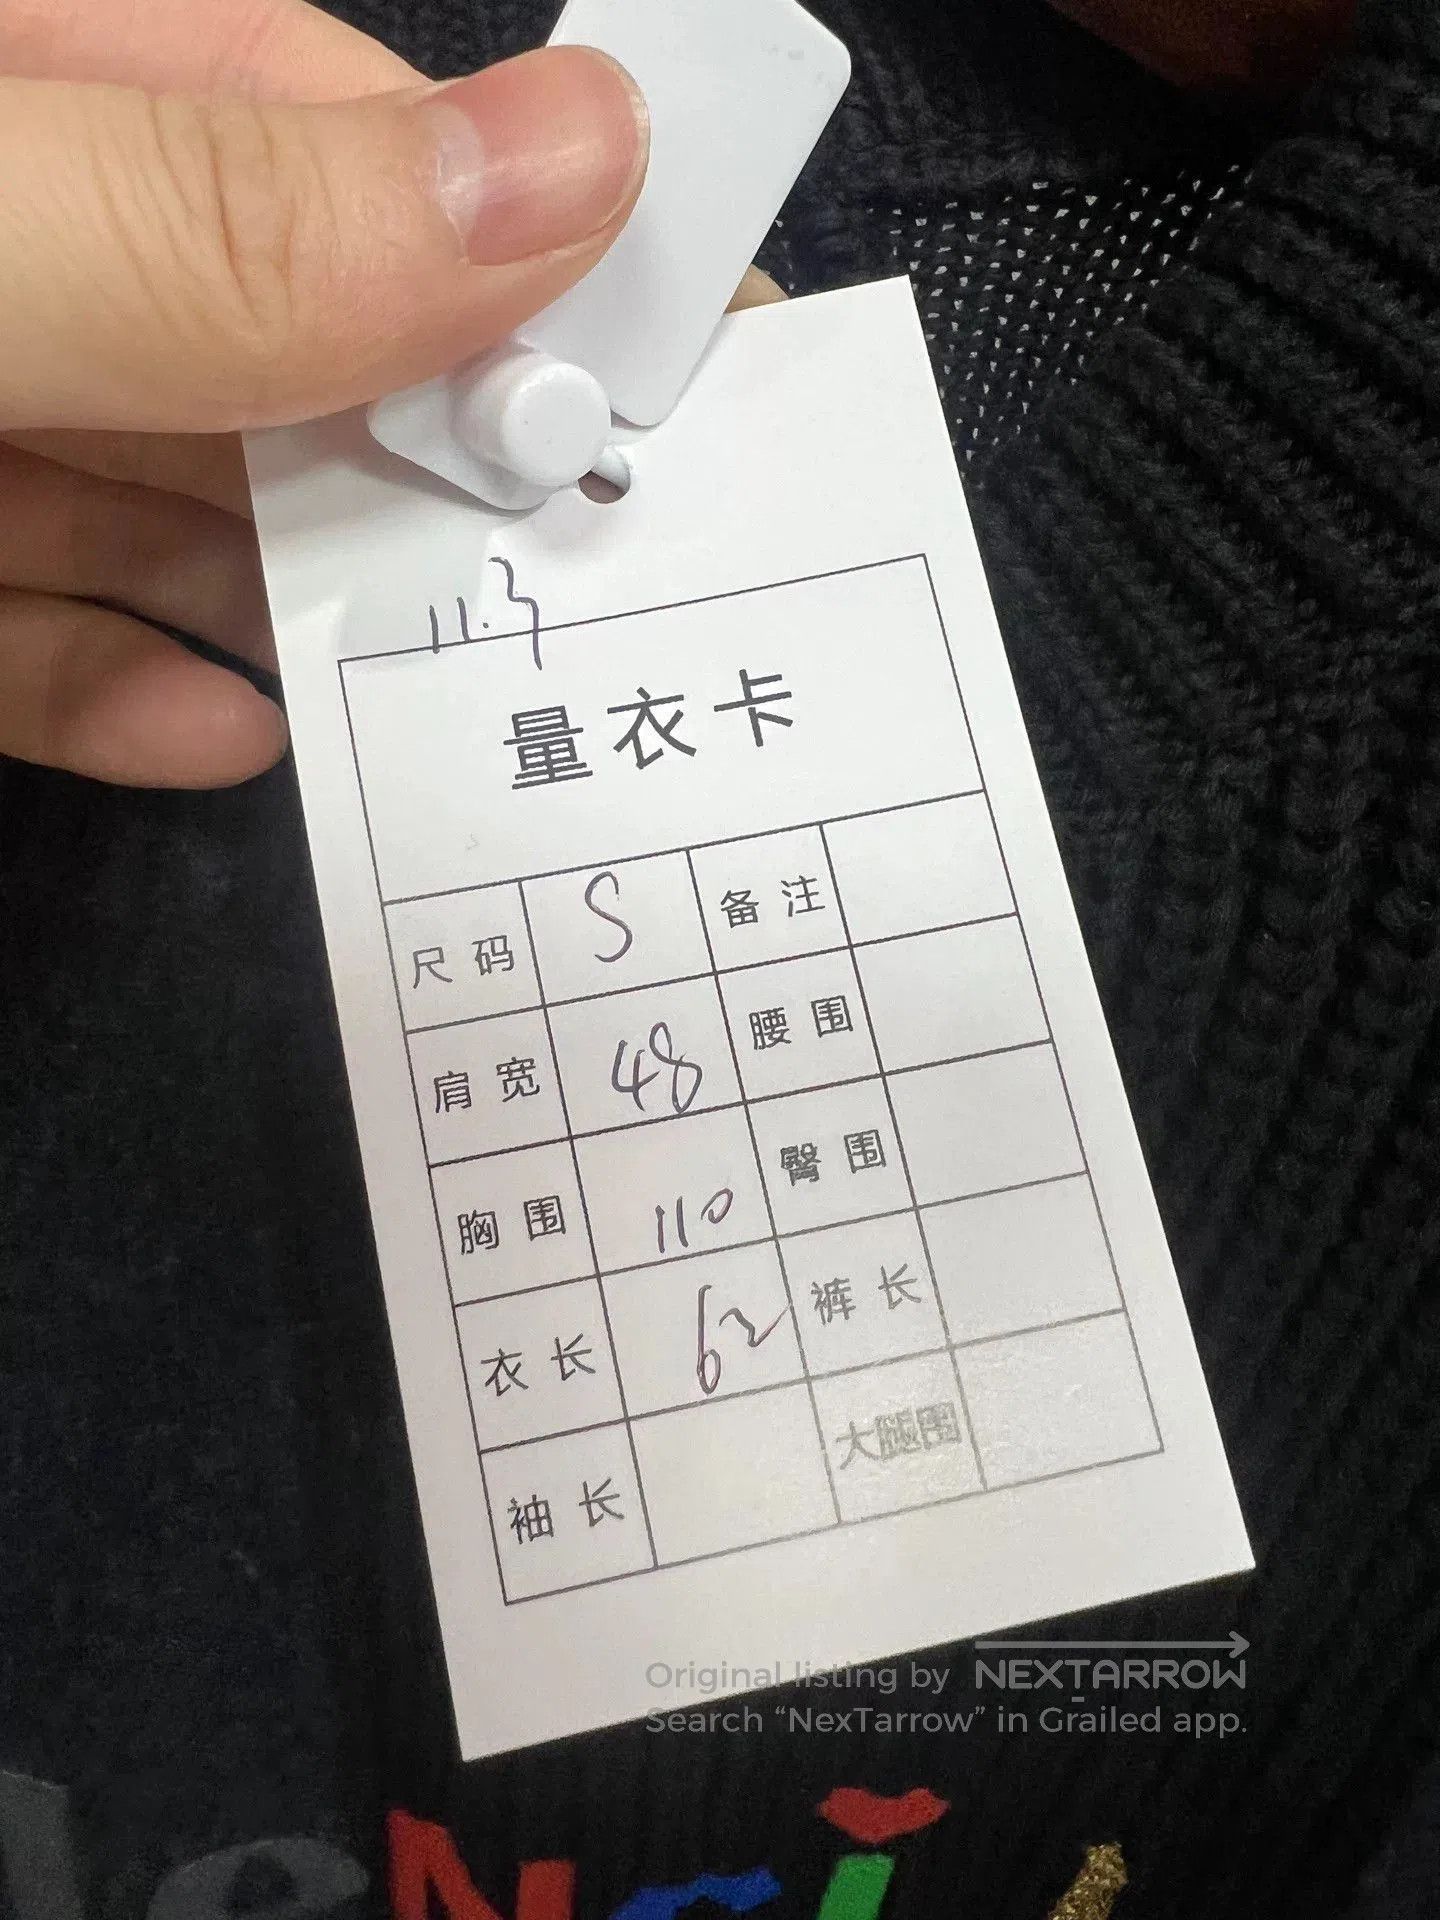 11.3
量衣卡
尺码 S 备注
肩宽 48 腰围
胸围 110 臀围
衣长 62 裤长
袖长 大腿围
Original listing by NEXTARROW
Search “NexTarrow” in Grailed app.